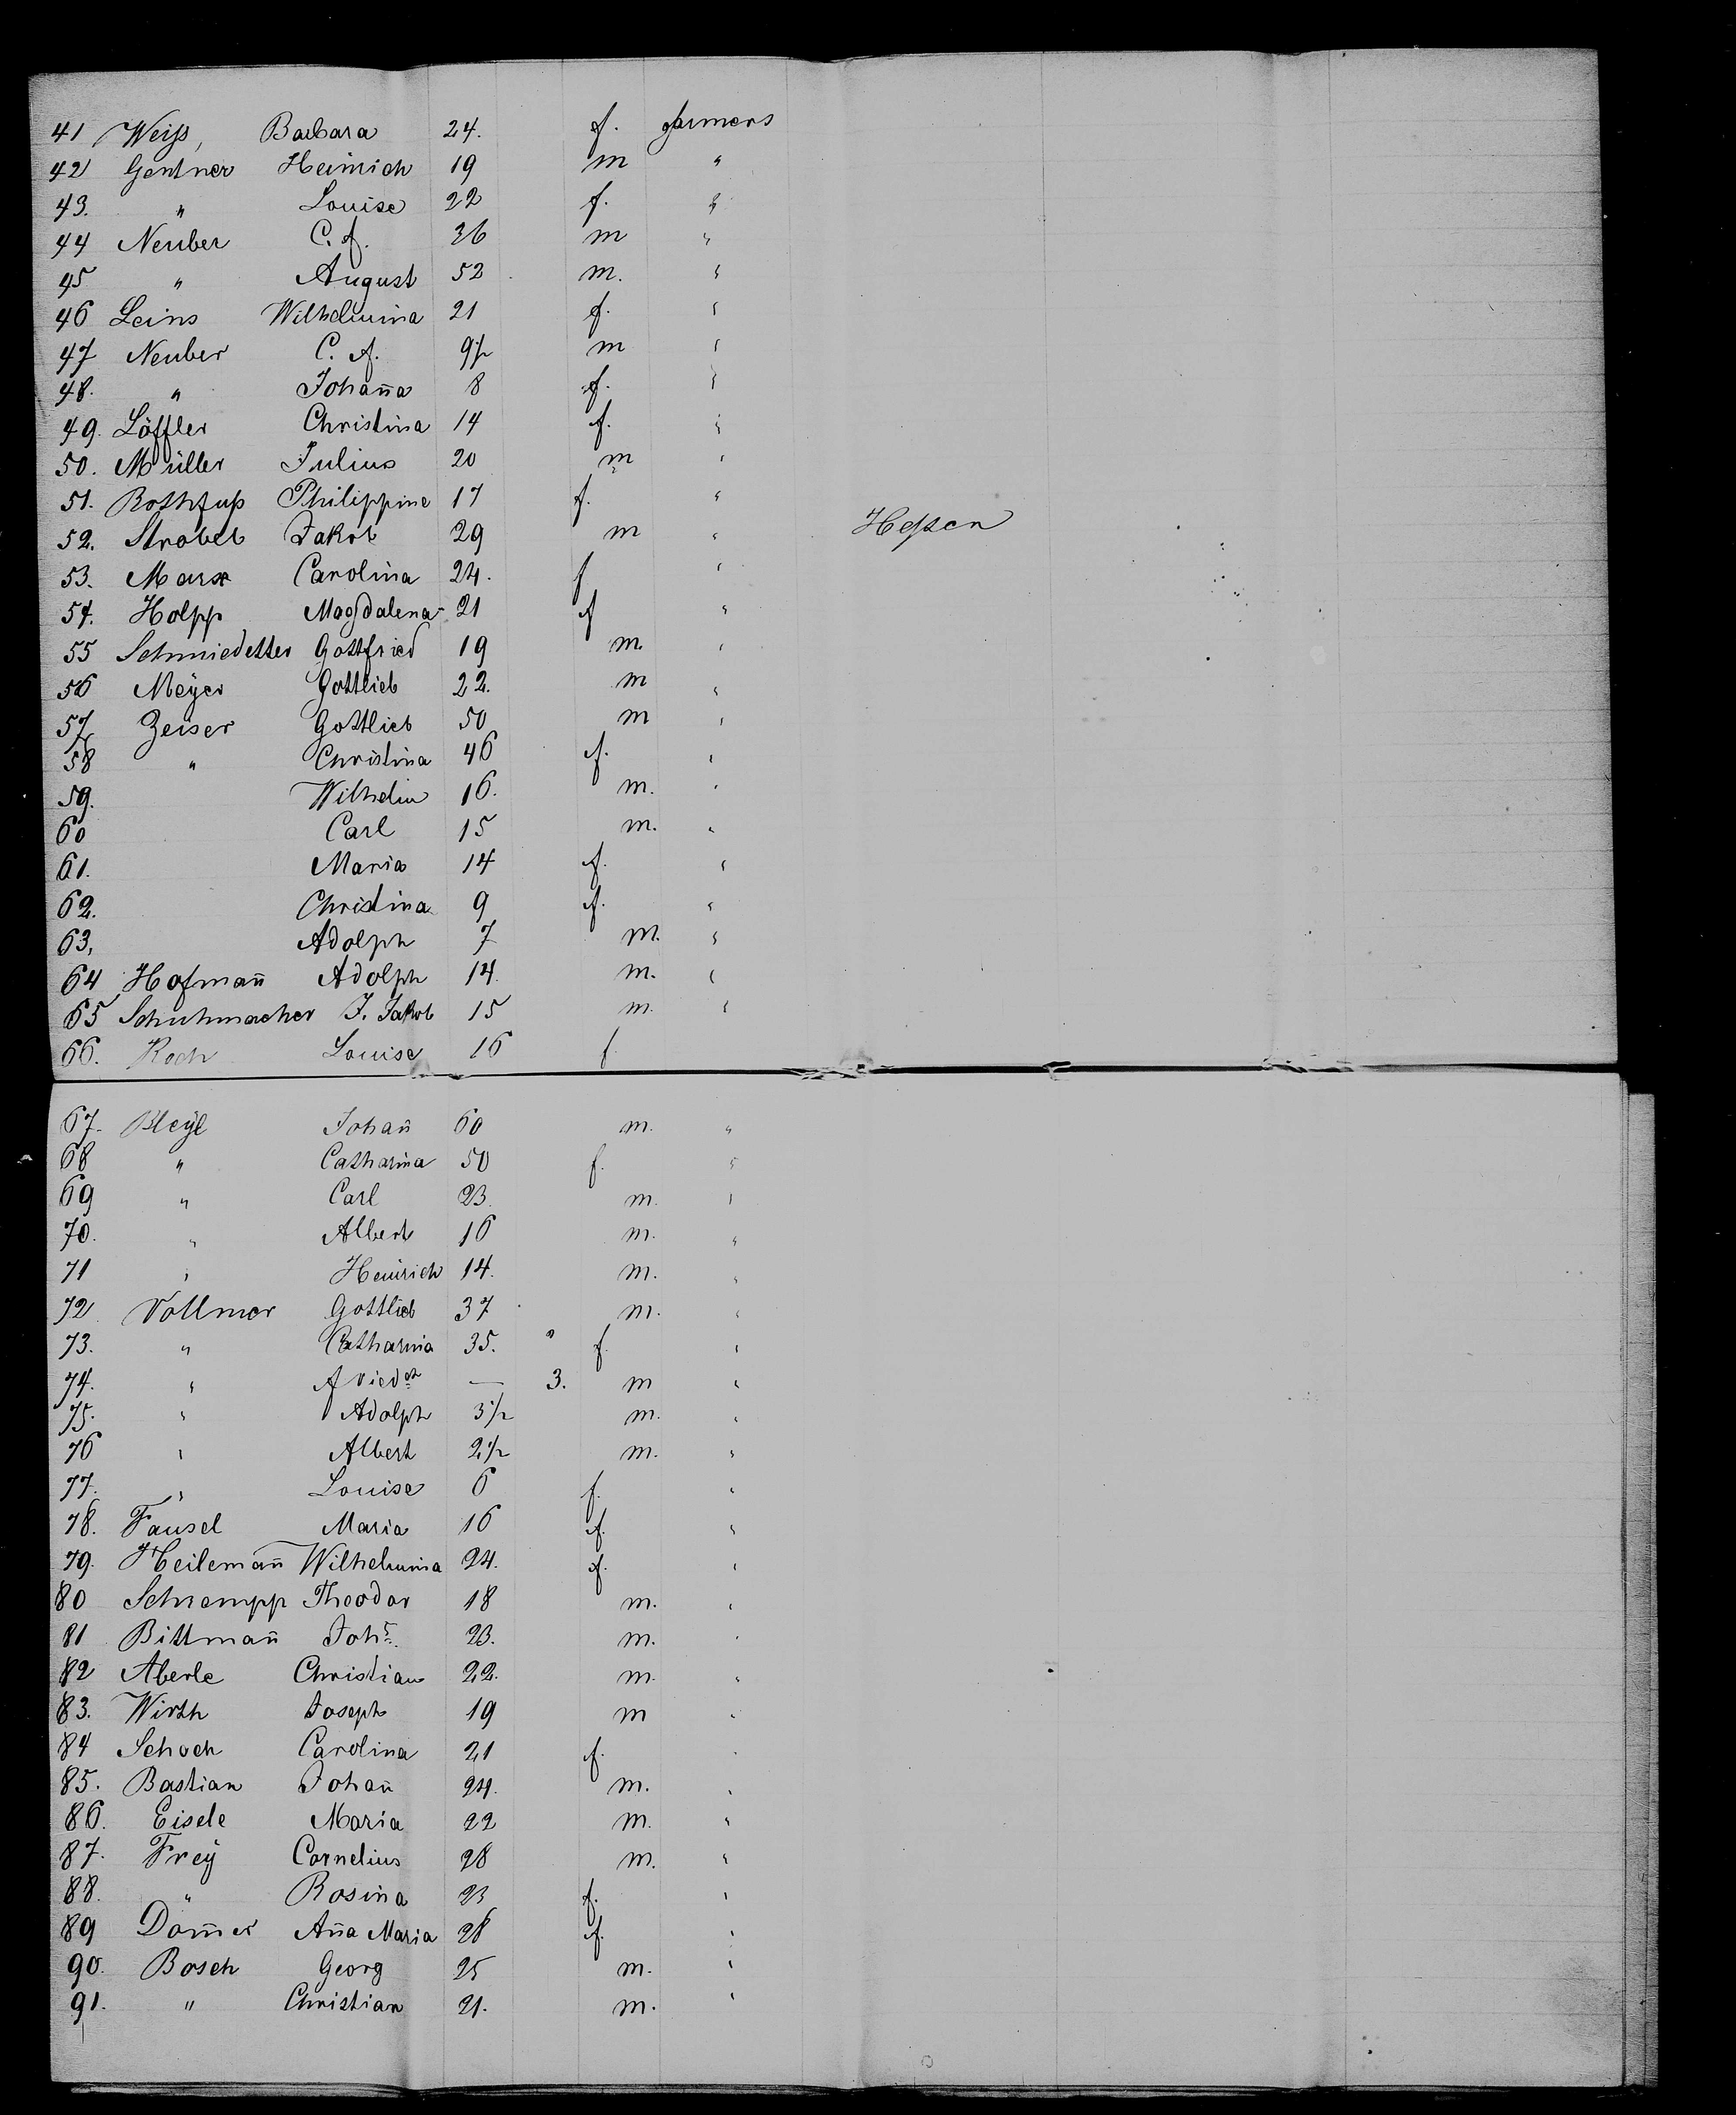 41 Weiſs, Barbara 24. f. farmers
42 Gentner Heinrich 19 m "
43. " Louise 22 f. "
44 Neuber C. f. 36 m "
45 " August 52 m. "
46 Leins Wilhelmina 21 f. "
47 Neuber C. A. 9½ m "
48. " Johan̄a 8 f. "
49. Löffler Christina 14 f. "
50. Müller Julius 20 m "
51. Rothfuſs Philippine 17 f. "
52. Strobel Jakob 29 m " Heſsen
53. Marx Carolina 24. f "
54. Holpp Magdalena 21 f "
55 Schmiedetter Gottfried 19 m. "
56 Meÿer Gottlieb 22. m "
57 Zeiser Gottlieb 50 m "
58 " Christina 46 f. "
59. Wilhelm 16. m. "
60 Carl 15 m. "
61. Maria 14 f. "
62. Christina 9 f. "
63. Adolph 7 m. "
64 Hofman̄ Adolph 14. m. "
65 Schuhmacher J. Jakob 15 m. "
66. Koch Louise 16 f
67. Bleÿl Johan̄ 60 m. "
68 " Catharina 50 f. "
69 " Carl 23. m. "
70. " Albert 16 m. "
71 " Heinrich 14. m. "
72 Vollmer Gottlieb 37 m. "
73. " Catharina 35. " f. "
74. " — 3. m "
75. " Adolph 3½ m. "
76 " Albert 2½ m. "
77. " Louise 6 f. "
78. Fausel Maria 16 f. "
79. Heileman̄ Wilhelmina 24. f. "
80 Schrempp Theodor 18 m. "
81 Bittman̄ Johs. 23. m. "
82 Aberle Christian 22. m. "
83. Wirth Joseph 19 m "
84 Schoch Carolina 21 f. "
85. Bastian Johan̄ 24. m. "
86. Eisele Maria 22 m. "
87. Freÿ Cornelius 28 m. "
88. " Rosina 23 f. "
89 Dom̄er An̄a Maria 28 f. "
90. Bosch Georg 25 m. "
91. " Christian 21. m. "